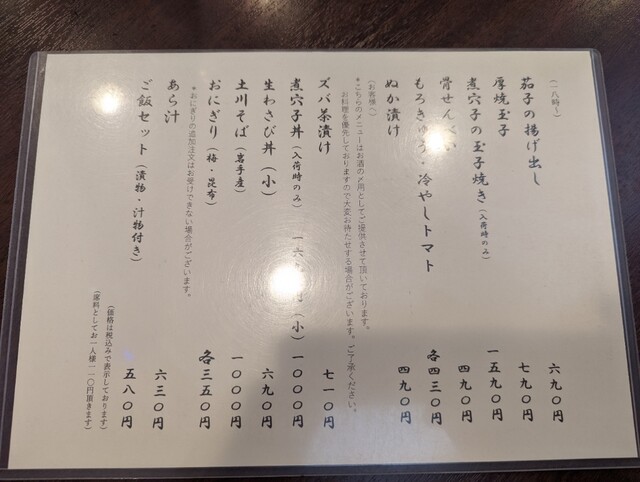 (一八時〜)
茄子の揚げ出し 六九〇円
厚焼玉子 七九〇円
煮穴子の玉子焼き(入荷時のみ) 一五九〇円
骨せん 四九〇円
もろきゅう・冷やしトマト 各四三〇円
ぬか漬け 四九〇円
(お客様へ)
*こちらのメニューはお酒の〆用としてご提供させて頂いております。
お料理を優先しておりますので大変お待たせする場合がございます。ご了承ください。
ズバ茶漬け 七一〇円
煮穴子丼(入荷時のみ) 円(小)一〇〇〇円
生わさび丼(小) 六九〇円
土川そば(岩手産) 一〇〇〇円
おにぎり(梅・昆布) 各三五〇円
*おにぎりの追加注文はお受けできない場合がございます。
あら汁 六三〇円
ご飯セット(漬物・汁物付き) 五八〇円
(価格は税込みで表示しております)
(席料としてお一人様一一〇円頂きます)